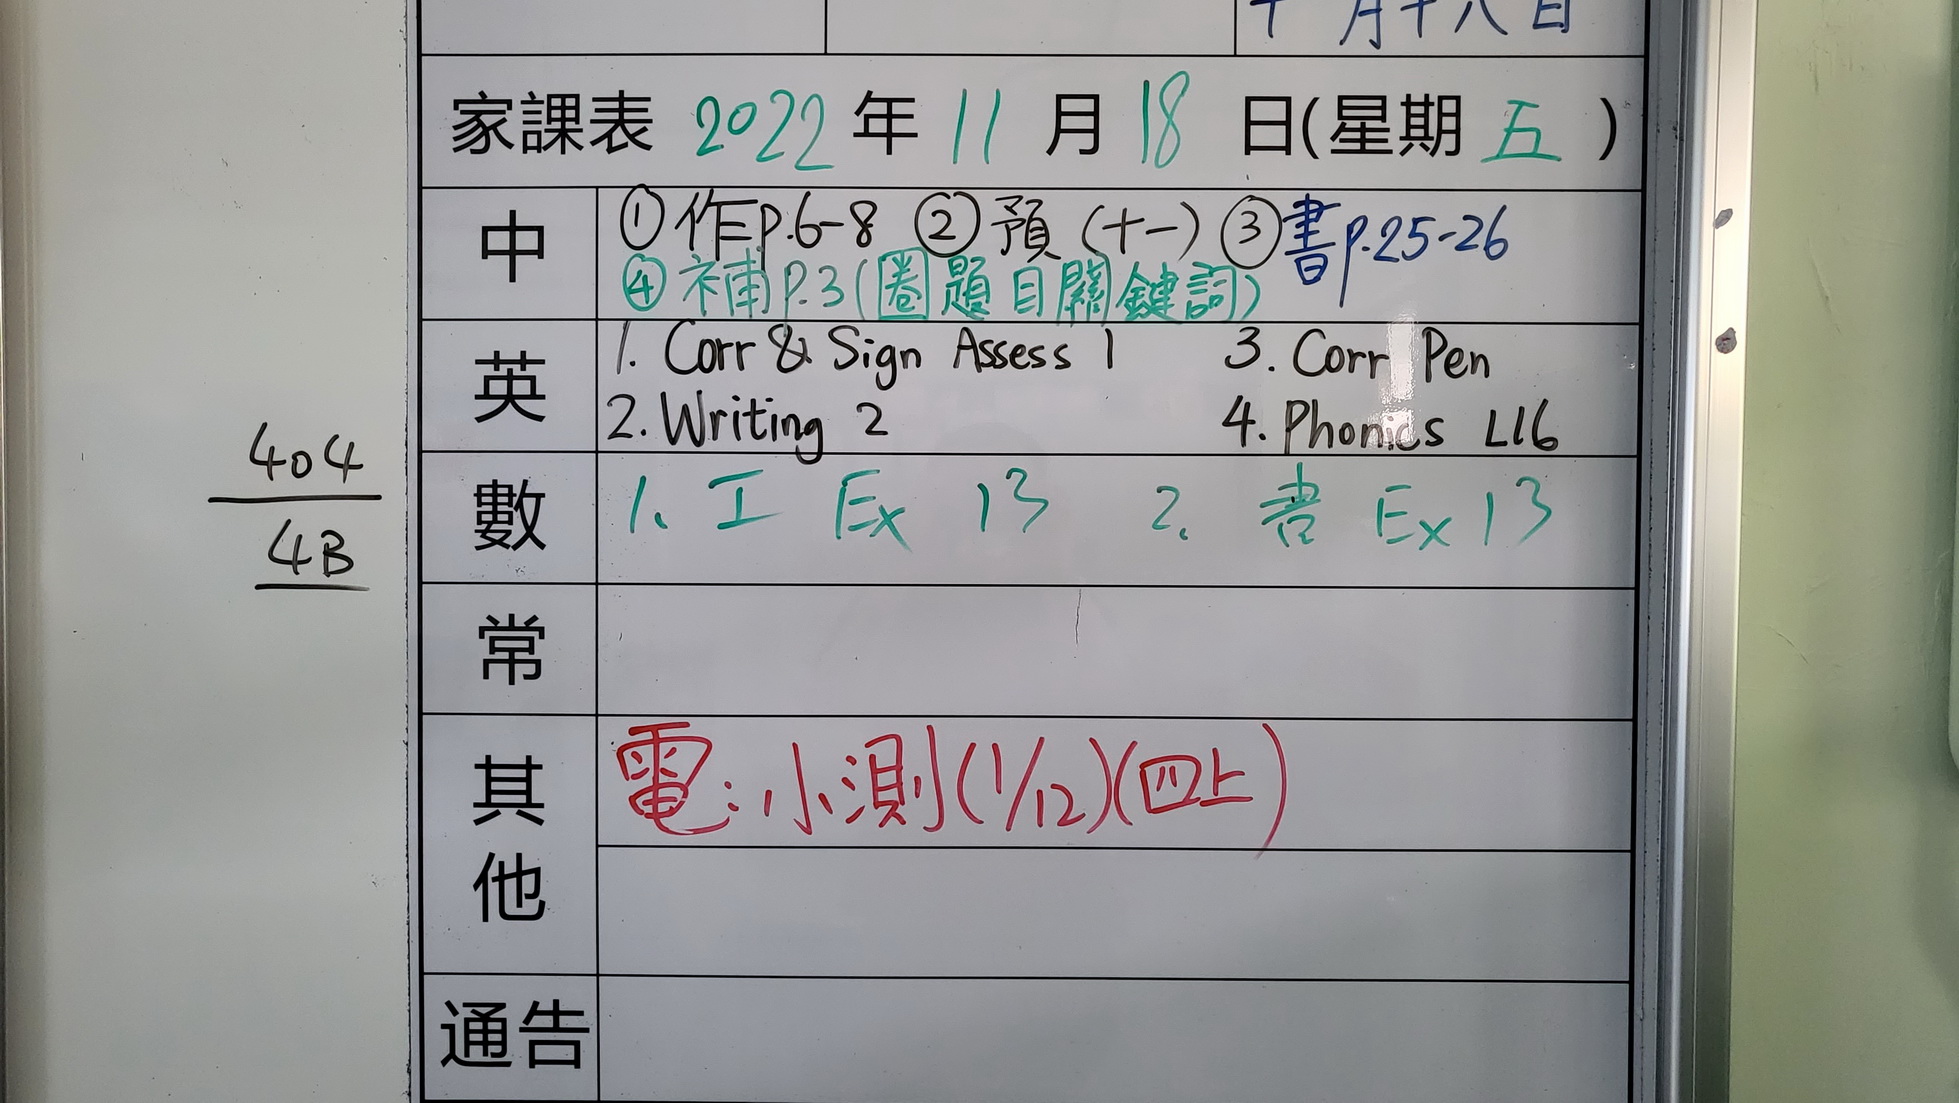 十月十八日
家課表 2022 年 11 月 18 日(星期 五 )
中
①作p.6-8 ②預(十一) ③書p.25-26
④補p.3(圈題目關鍵詞)
英
1. Corr & Sign Assess 1 3. Corr Pen
2. Writing 2 4. Phonics L16
數
1. 工 Ex 13 2. 書 Ex 13
常
其他
電:小測(1/12)(四上)
通告
404
4B